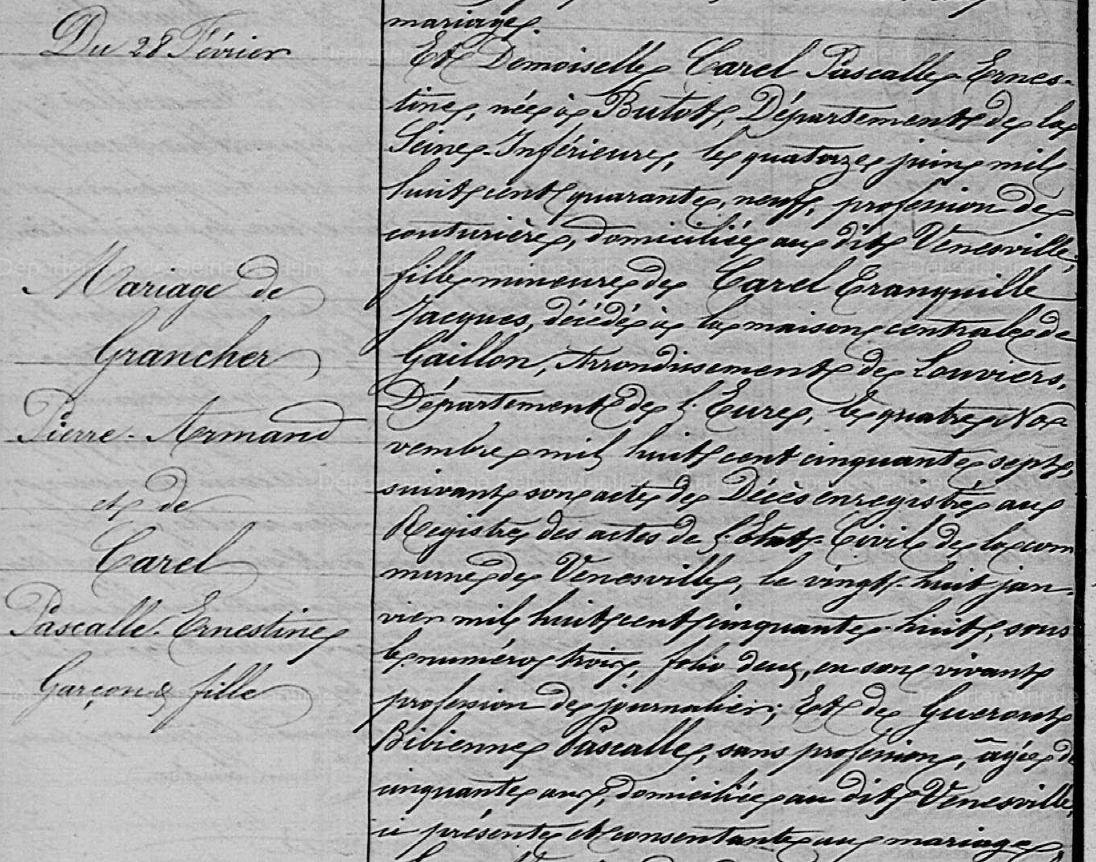 Du 28 Février
Mariage de
Grancher
Pierre-Armand
et de
Carel
Pascalle-Ernestine
Garçon & fille
mariage
Et Demoiselle Carel Pascalle-Ernes-
tine, née à Butot, Département de la
Seine-Inférieure, le quatorze juin mil
huit cent quarante, neuf, profession de
couturière, domiciliée au dit Venesville,
fille mineure de Carel Tranquille
Jacques, décédé à la maison centrale de
Gaillon, Arrondissement de Louviers,
Département de l'Eure, le quatre No-
vembre mil huit cent cinquante sept,
suivant son acte de Décès enregistré au
Registre des actes de l'Etat-Civil de la com
mune de Venesville, le vingt-huit jan-
vier mil huit cent cinquante-huit, sous
le numéro trois, folio deux, en son vivant
profession de journalier; Et de Gueroult
Bibienne Pascalle, sans profession, âgée de
cinquante ans, domiciliée au dit Venesville,
ici présente et consentante au mariage,